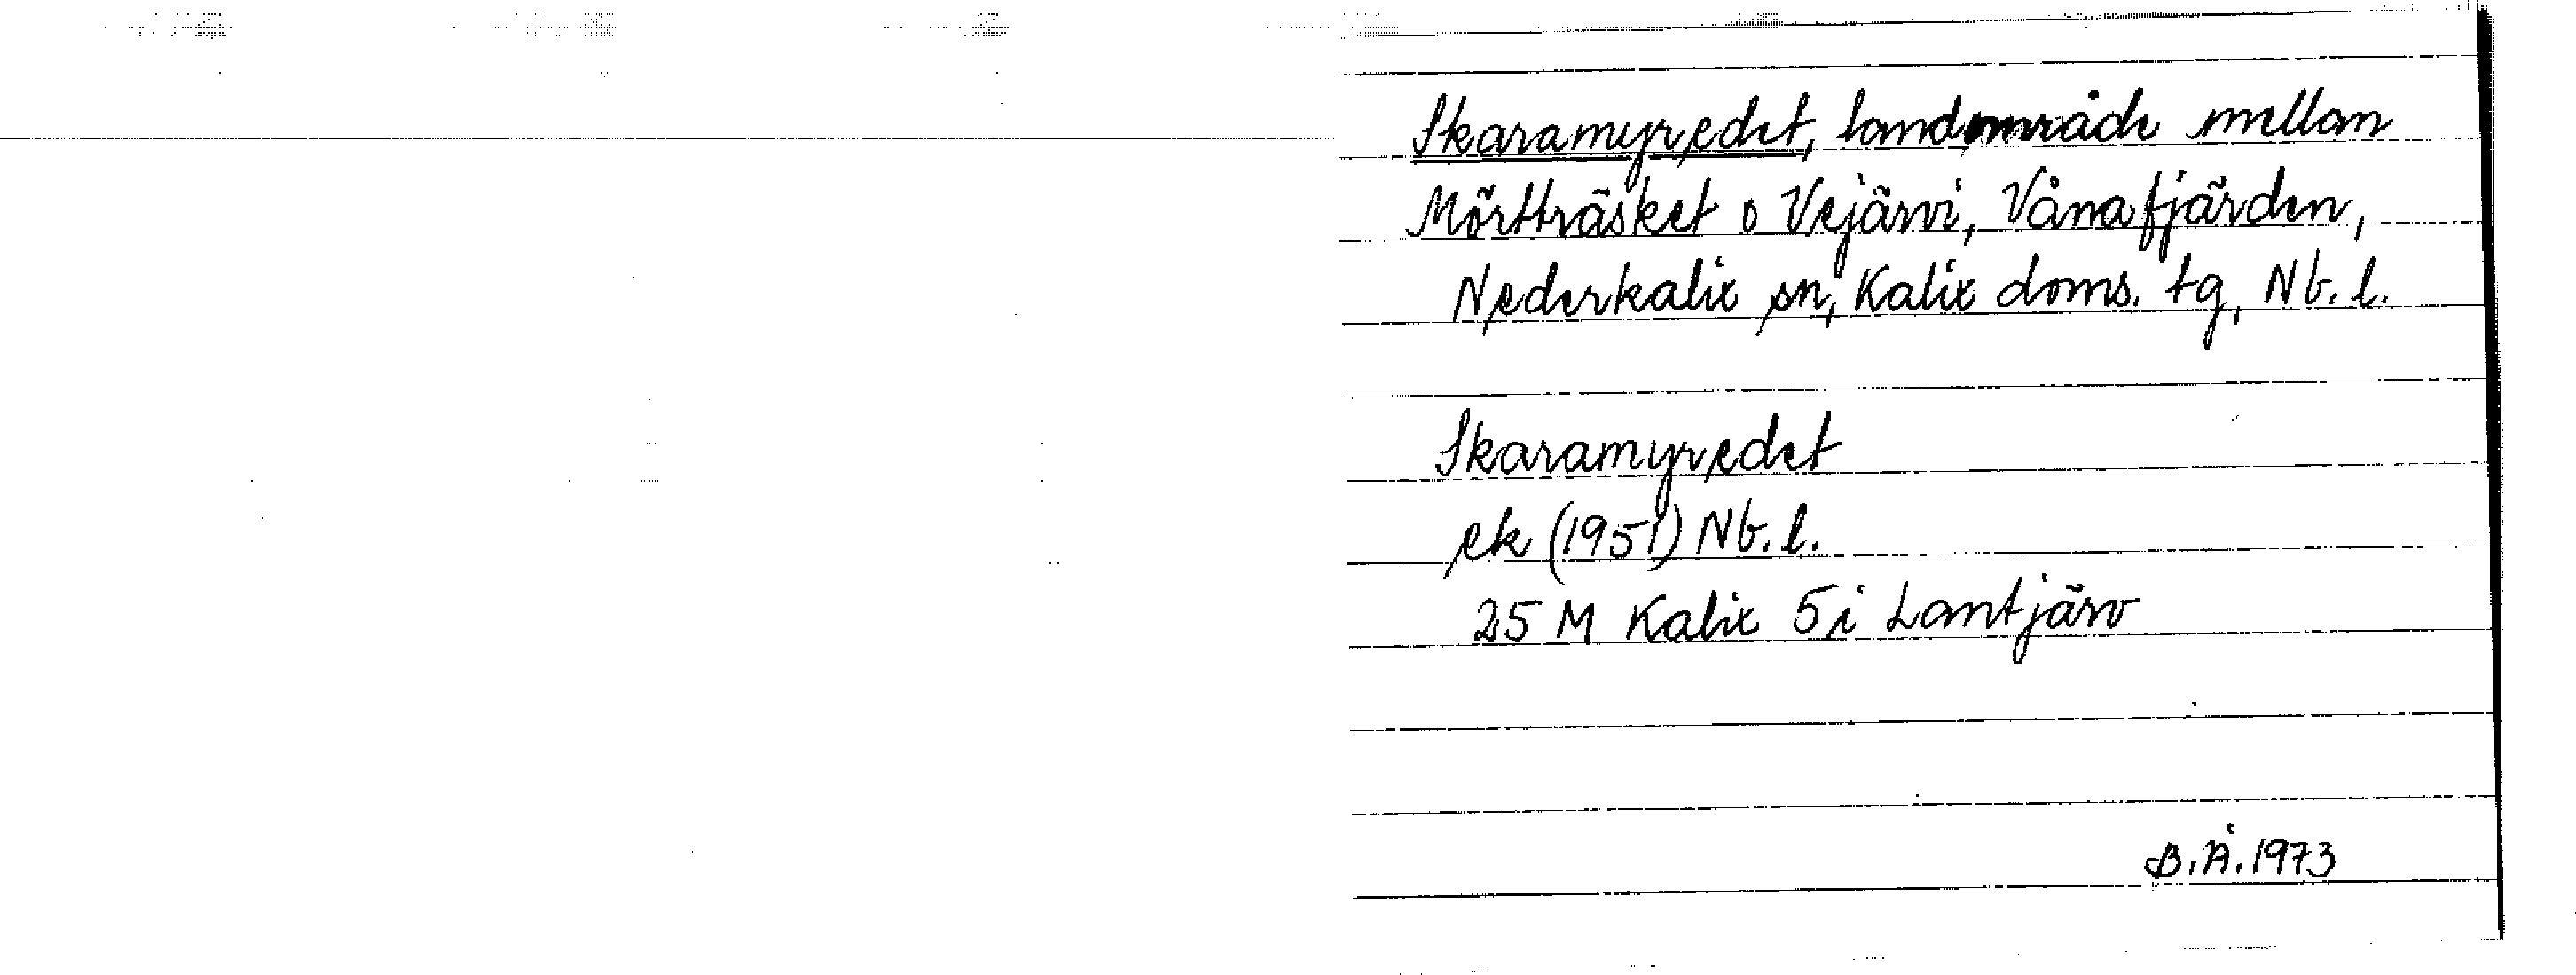 Skaramyredet, landområde mellan
Mörtträsket o Vejärvi, Vånafjärden,
Nederkalix sn, Kalix doms. tg, Nb. l.
Skaramyredet
ek (1951) Nb. l.
25 M Kalix 5i Lantjärv
B.Å. 1973